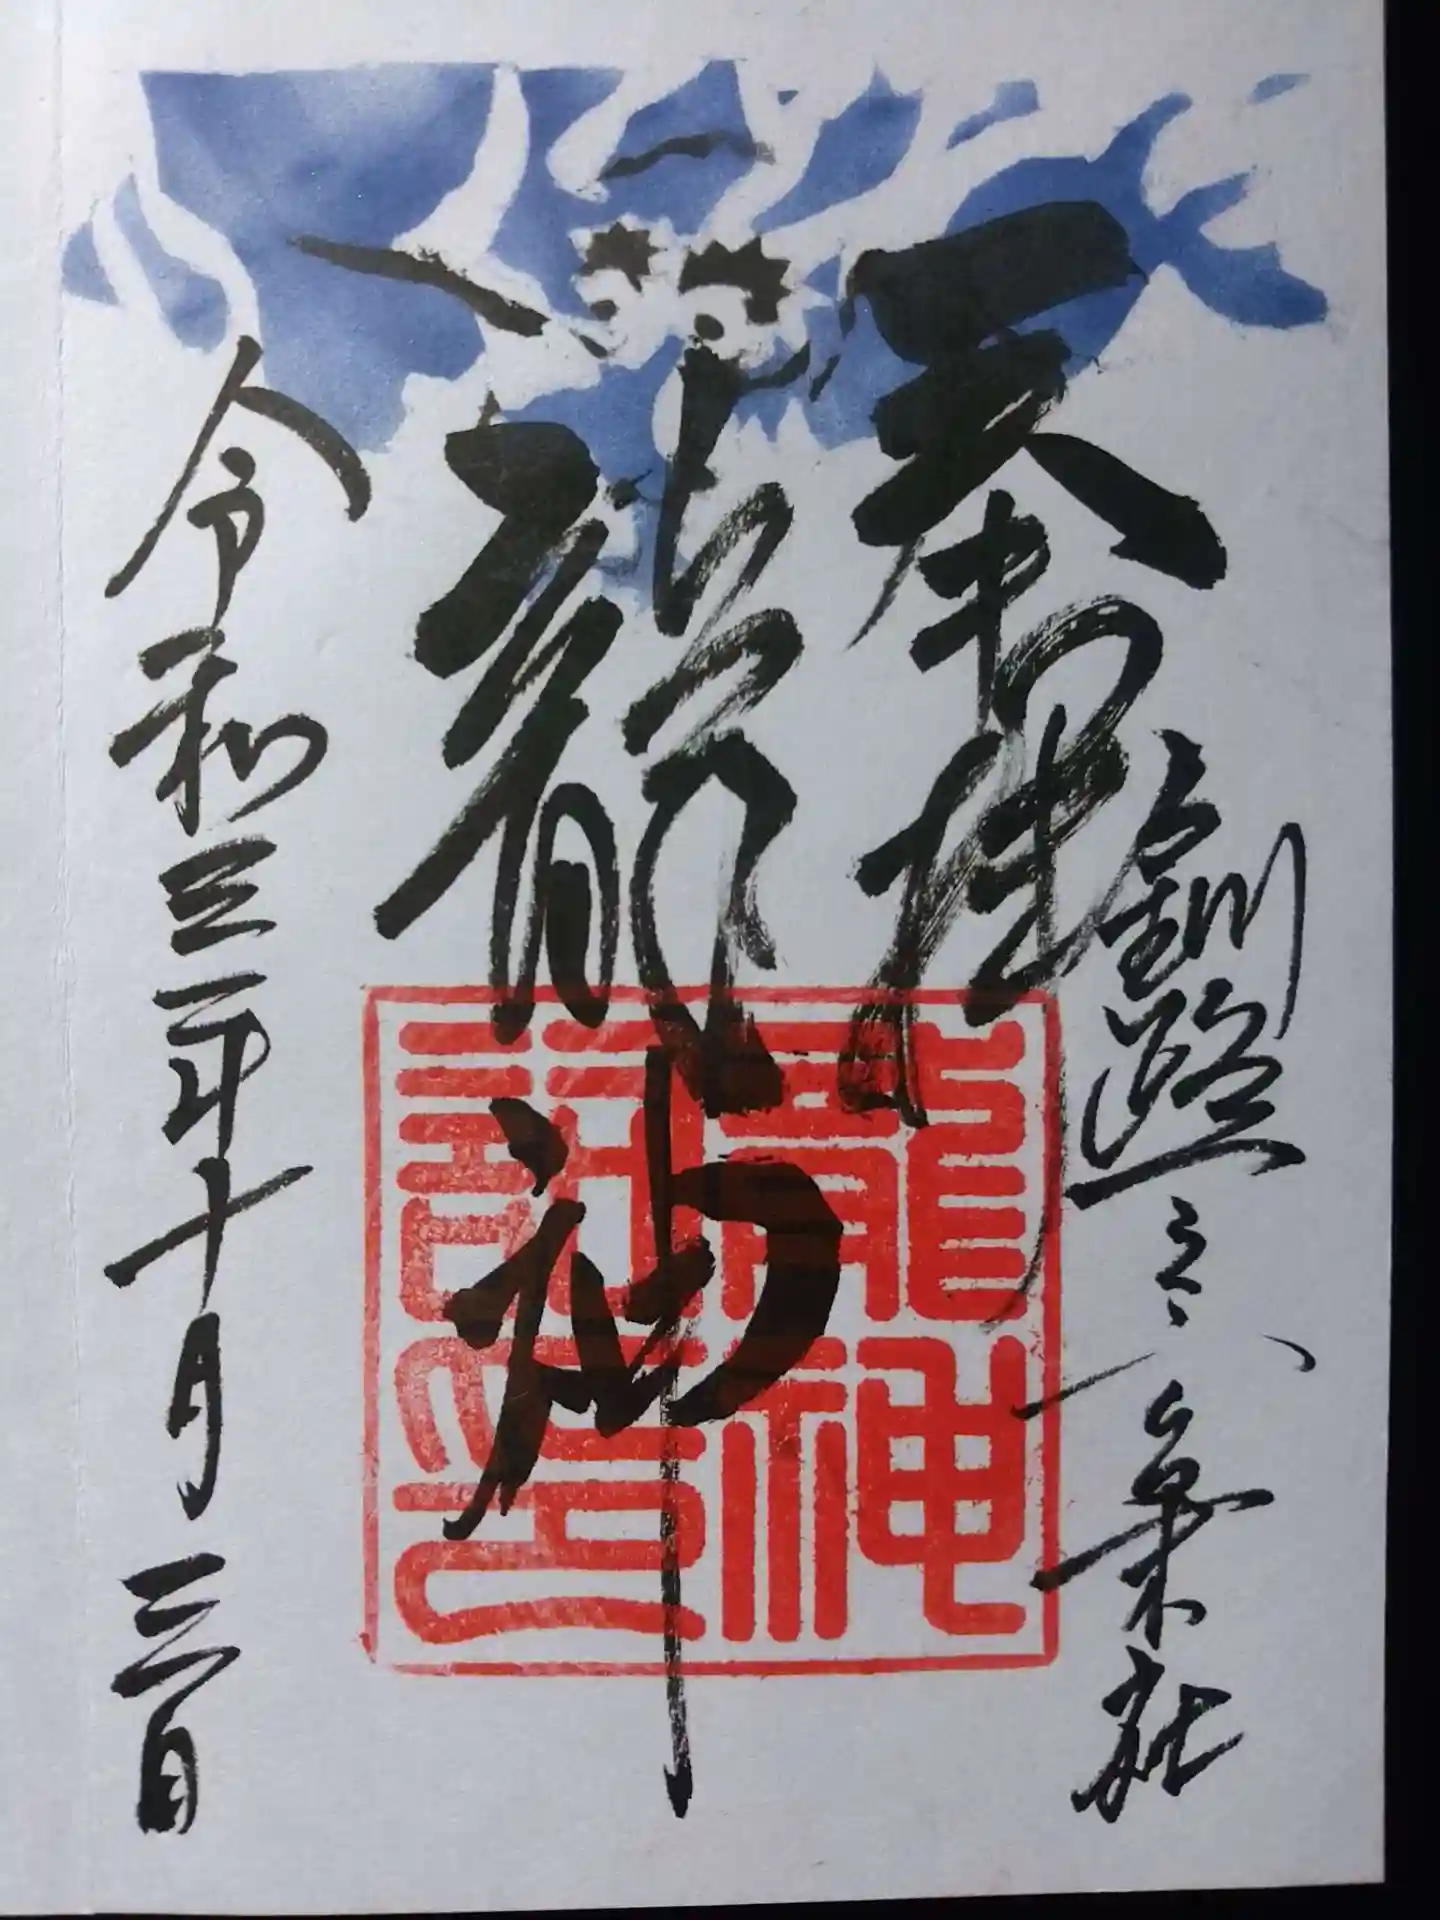 奉拝
釧路
龍神
令和三年十月三日
龍神